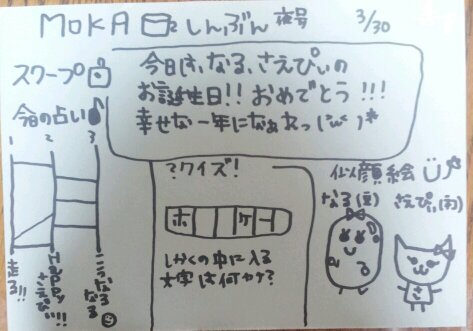 MOKA しんぶん 夜号 3/30
スクープ
今日は、なる、さえぴぃの
お誕生日!! おめでとう!!!
幸せな一年になぁれっ(˙ω˙)*
今日の占い
1 2 3
走る!!
にっこりなる
?クイズ!
ホ ケー
しかくの中に入る
文字は何かな?
似顔絵
なる(豆) さえぴぃ(ネ)